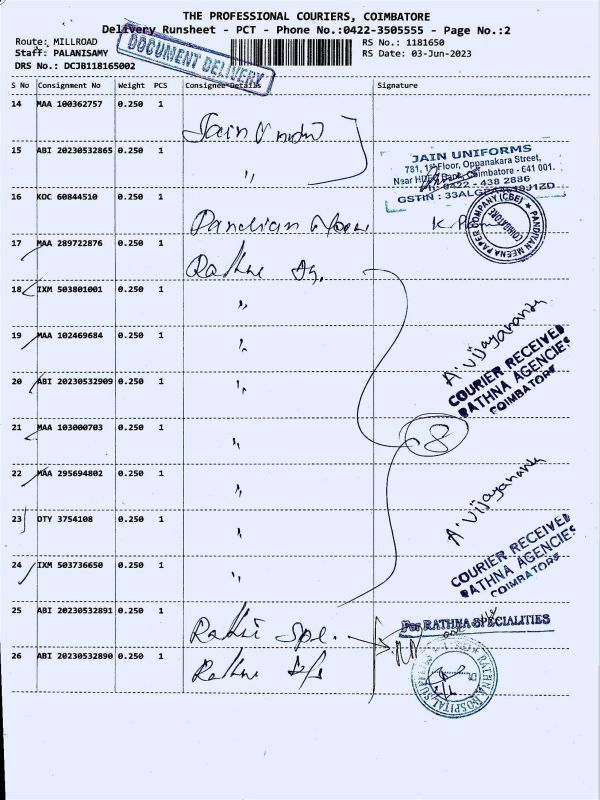 THE PROFESSIONAL COURIERS, COIMBATORE
Delivery Runsheet - PCT - Phone No.:0422-3505555 - Page No.:2
Route: MILLROAD
RS No.: 1181650
Staff: PALANISAMY
RS Date: 03-Jun-2023
DRS No.: DCJB118165002
DOCUMENT DELIVERY
S No Consignment No Weight PCS Consignee Details Signature
14 MAA 100362757 0.250 1
Jain
15 ABI 20230532865 0.250 1
"
JAIN UNIFORMS
781, 1st Floor, Oppanakara Street,
Near HDFC Bank, Coimbatore - 641 001.
0422 - 438 2886
16 KOC 60844510 0.250 1
Pandian
PANDIYAN MEENA PAPER COMPANY (CBE)
COIMBATORE
17 MAA 289722876 0.250 1
Rathne
18 IXM 503801001 0.250 1
"
19 MAA 102469684 0.250 1
"
A. Vijayananda
COURIER RECEIVED
RATHNA AGENCIES
COIMBATORE
20 ABI 20230532909 0.250 1
"
21 MAA 103000703 0.250 1
"
8
22 MAA 295694802 0.250 1
"
A. Vijayananda
23 OTY 3754108 0.250 1
"
COURIER RECEIVED
RATHNA AGENCIES
COIMBATORE
24 IXM 503736650 0.250 1
"
25 ABI 20230532891 0.250 1
Spe.
For RATHNA SPECIALITIES
26 ABI 20230532890 0.250 1
Rathne
RATHNA HOSPITAL